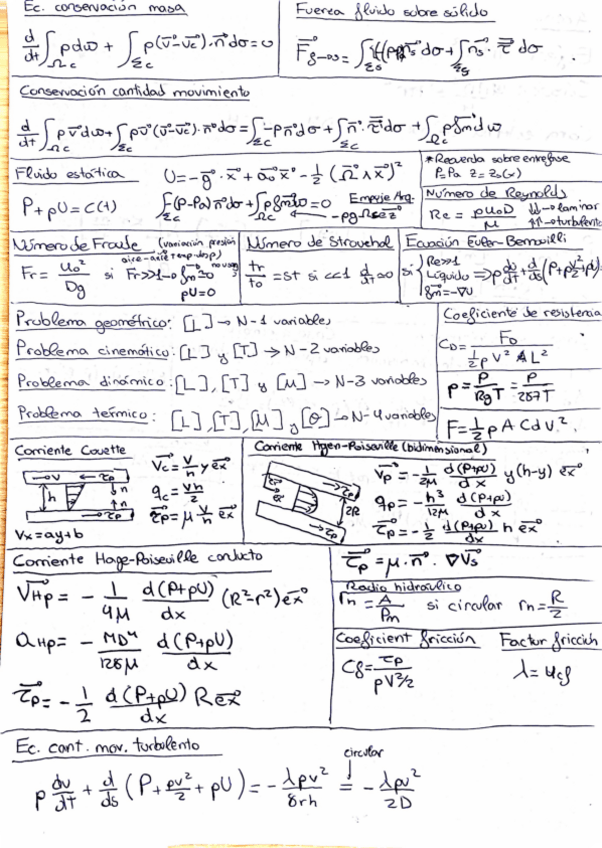 Ec. conservación masa
d/dt ∫Ωc ρdω + ∫Σc ρ(v⃗-v⃗c)·n⃗ dσ = 0
Fuerza fluido sobre sólido
Conservación cantidad movimiento
d/dt ∫Ωc ρv⃗dω + ∫Σc ρv⃗(v⃗-v⃗c)·n⃗dσ = ∫Σc -Pn⃗dσ + ∫Σc n⃗·τ⃗dσ + ∫Ωc ρf⃗m dω
Fluido estática
U = -g⃗·x⃗ + a⃗o x⃗ - 1/2 (Ω⃗ ∧ x⃗)²
P + ρU = C(t)
Empuje Arq.
*Recuerda sobre entrefase
P=Pa z=zs(x)
Número de Reynolds
Re = ρUoD/μ ↓↓→laminar
↑↑→turbulento
Número de Froude (variación presión
Fr = Uo²/Dg si Fr>>1→f⃗m≈0
ρU=0
Número de Strouhal
tr/to = St si <<1 d/dt≈0
Ecuación Euler-Bernoilli
si { Re>>1
Líquido ⇒ρ dv/dt + d/ds (P+ρv²/2+ρU)
f⃗m=-∇U
Problema geométrico: [L] → N-1 variables
Problema cinemático: [L] y [T] → N-2 variables
Problema dinámico: [L], [T] y [M] → N-3 variables
Problema térmico: [L], [T], [M] y [θ] → N-4 variables
Coeficiente de resistencia
CD = FD / 1/2 ρ V² L²
ρ = P/RgT = P/287T
F = 1/2 ρ A Cd v².
Corriente Couette
→V τp
h n
n
τp
Vx = ay+b
v⃗c = V/h y e⃗x
qc = Vh/2
τ⃗p = μ V/h e⃗x
Corriente Hgen-Poiseuille (bidimensional)
τp
2R
τp
v⃗p = -1/2μ d(P+ρU)/dx y(h-y) e⃗x
qp = -h³/12μ d(P+ρU)/dx
τ⃗p = -1/2 d(P+ρU)/dx h e⃗x
τ⃗p = μ·n⃗·∇v⃗s
Corriente Hage-Poiseuille conducto
v⃗Hp = - 1/4μ d(P+ρU)/dx (R²-r²) e⃗x
QHp = - πD⁴/128μ d(P+ρU)/dx
τ⃗p = - 1/2 d(P+ρU)/dx R e⃗x
Radio hidraúlico
rh = A/Pm si circular rh = R/2
Coeficient fricción
Cf = τp/ρV²/2
Factor fricción
λ = 4cf
Ec. cant. mov. turbulento
circular
↓
ρ dv/dt + d/ds (P + ρv²/2 + ρU) = - λρv²/8rh = - λρv²/2D